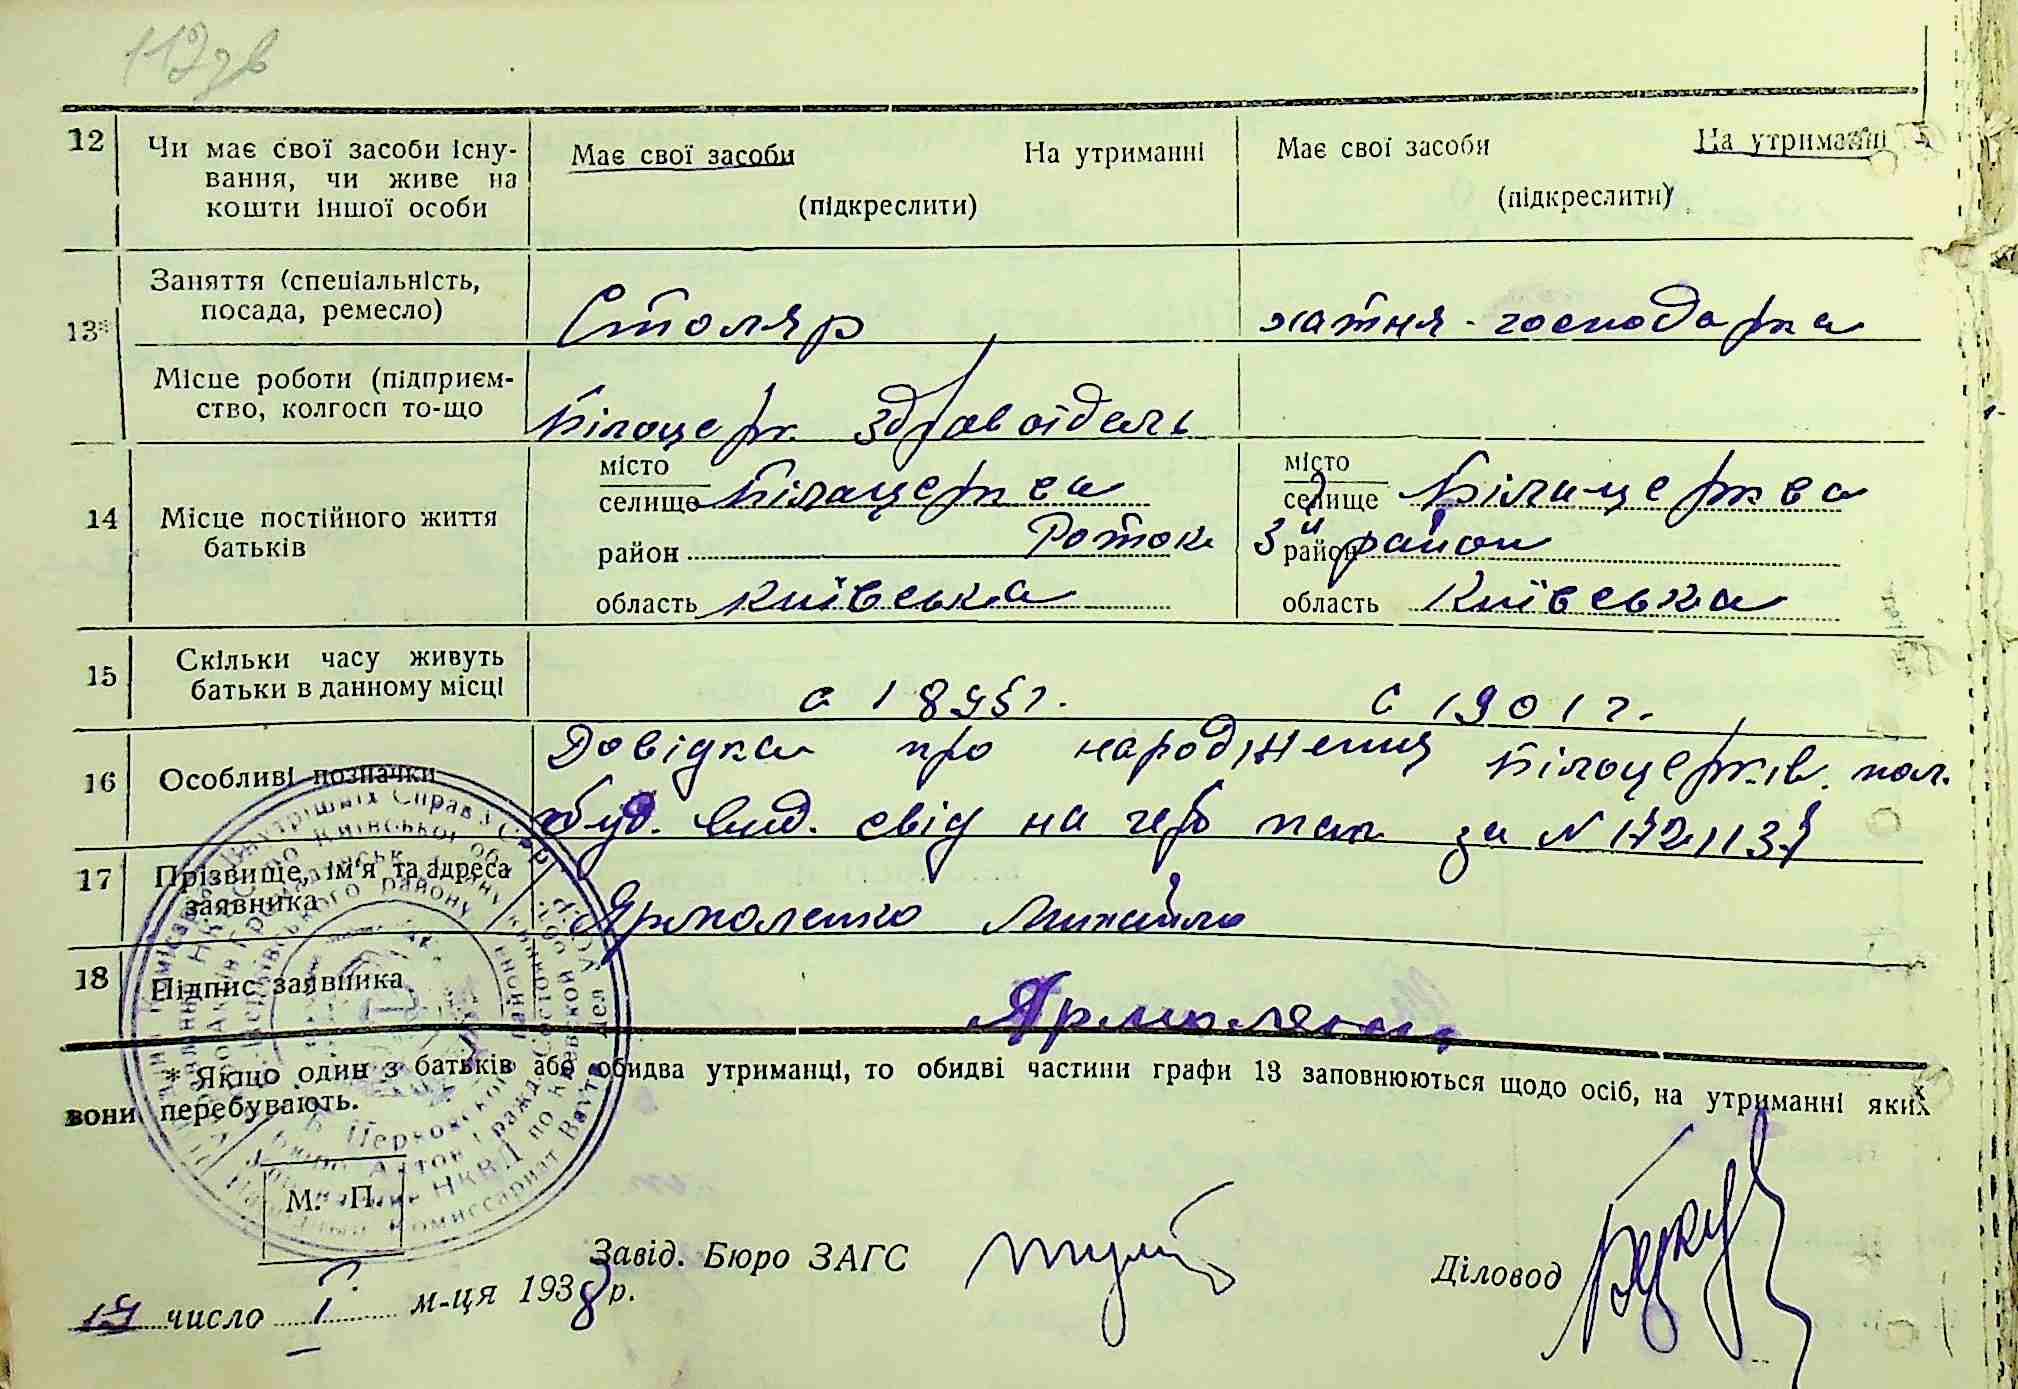 112 зв
12
Чи має свої засоби існу-
вання, чи живе на
кошти іншої особи
Має свої засоби На утриманні
(підкреслити)
Має свої засоби На утриманні
(підкреслити)
13*
Заняття (спеціальність,
посада, ремесло)
Столяр
хатня - господарка
Місце роботи (підприєм-
ство, колгосп то-що
Білоцерк. Здравотдель
14
Місце постійного життя
батьків
місто
селище Білацерква
район Роток
область Київська
місто
селище Білацерква
район 3й район
область Київська
15
Скільки часу живуть
батьки в данному місці
с 1895 г.
с 1901 г.
16
Особливі позначки
Довідка про народження Білоцерків. пол.
буд. вид. свід на
за N
17
Прізвище, ім'я та адреса
заявника
Ярмоленко Михайло
18
Підпис заявника
* Якщо один з батьків або обидва утриманці, то обидві частини графи 13 заповнюються щодо осіб, на утриманні яких
вони перебувають.
М. П.
Завід. Бюро ЗАГС
Діловод
19 число I м-ця 1938 р.